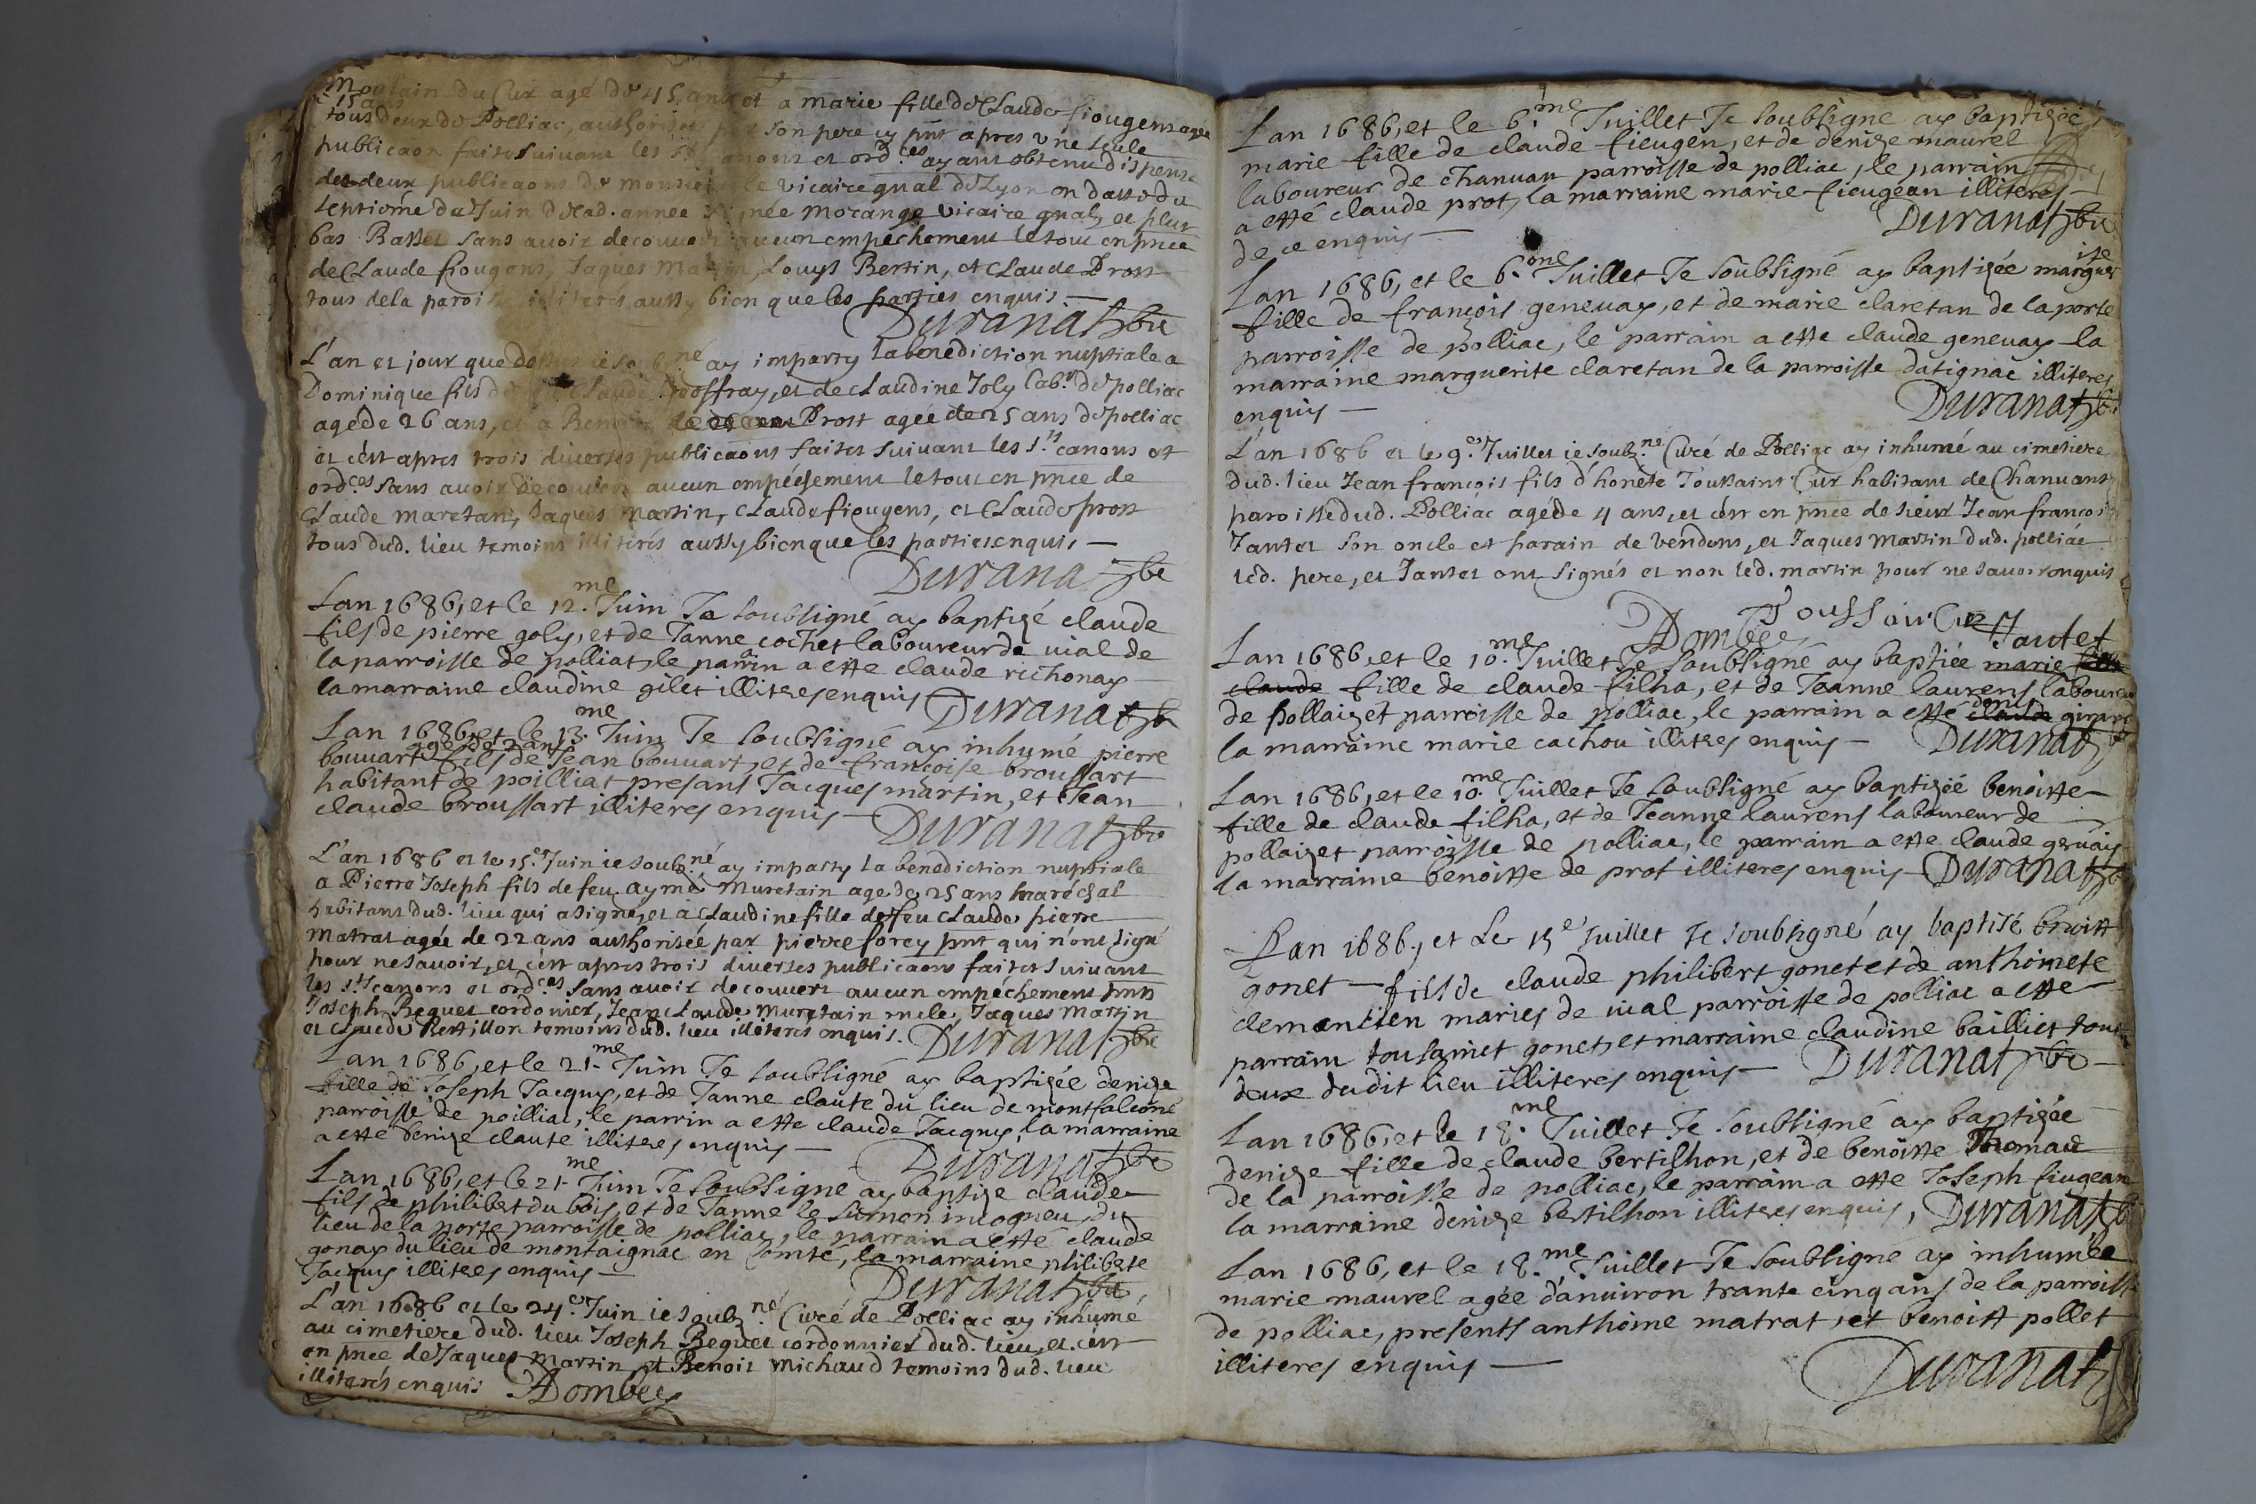 Moulain du Cux agé de 45 ans et a marie fille de Claude fiougens agée
15 ans
tous deux de Polliac, authorisés par son pere cy pnt apres une seule
publicaon faite suivant les sts canons et ordces ayant obtenu dispense
des deux publicaons de monsieur le vicaire gnal de Lyon en datte du
septieme du Juin de lad. année signée morange vicaire gnal, et plus
bas Basset sans avoir decouvert aucun empéchement le tout en pnce
de Claude fiougens, Jaques Martin, Louys Bertin, et Claude Prost
tous de la paroisse illiterés aussy bien que les parties enquis.
Duranat pbre
L'an et jour que dessus ie soubné ay imparty la benediction nuptiale a
Dominique fils de Claude Jooffray, et de Claudine Joly lab.r de polliac
agé de 26 ans, et a Benoite Prost agée de 25 ans de polliac
et c'est apres trois diverses publicaons faites suivant les sts canons et
ordces sans avoir decouvert aucun empéchement le tout en pnce de
Claude maretan, Jaques martin, Claude fiougens, et Claude prost
tous dud. lieu temoins illiterés aussy bien que les parties enquis
Duranat pbre
Lan 1686, et le 12.me Juin Je soubsigné ay baptizé claude
fils de pierre goly, et de Janne cochet laboureur de vial de
la parroisse de polliat, le parrin a este claude richonay
la marraine claudine gilet illiteres enquis Duranat pbr
Lan 1686, et le 13.me Juin Je soubsigné ay inhumé pierre
agé de 2 ans
bouvart fils de Jean bouvart, et de francoise broussart
habitant de poilliat presans Jacques martin, et Jean
claude broussart illiteres enquis
Duranat pbre
L'an 1686 et le 15.e Juin ie soubz.né ay imparty la benediction nuptiale
a Pierre Joseph fils de feu aymé Muretain agé de 25 ans maréchal
habitant dud. lieu qui a signé, et à Claudine fille de feu Claude pierre
matrat agée de 22 ans authorisée par pierre forey pnt qui n'ont signé
pour ne savoir, et c'est apres trois diverses publicaons faites suivant
les sts canons et ordces sans avoir decouvert aucun empéchement pnts
Joseph Beguet cordonier, Jean Claude Muretain mcle, Jaques Martin
et Claude Bertillon temoins dud. lieu illiterés enquis. Duranat pbre
Lan 1686, et le 21.me Juin Je soubsigné ay baptizée denize
fille de Joseph Jacquy, et de Janne claute du lieu de montfalconé
parroisse de poilliac, le parrin a este claude Jacquy, la marraine
a esté denize claute illiteres enquis
Duranat pbre
Lan 1686, et le 21.me Juin Je soubsigne ay baptize claude
fils de philibert du bois, et de Janne le surnon incogneu, du
lieu de la porte parroisse de polliac, le parrain a esté claude
gonay du lieu de montaignac en Comté, la marraine philiberte
Jacquy illiteres enquis
Duranat pbre
L'an 1686 et le 24.e Juin ie soubz.né Curé de Polliac ay inhumé
au cimetiere dud. lieu Joseph Beguet cordonnier dud. lieu, et c'est
en pnce de Jaques Martin et Benoit Michaud temoins dud. lieu
illiterés enquis ADombey
Lan 1686, et le 6.me Juillet Je soubsigné ay baptizée
marie fille de claude fieugen, et de denize maurel
laboureur de chanvan parroisse de polliac, le parrain
a esté claude prot, la marraine marie fieugean illiteres
de ce enquis
Duranat pbre
ite
Lan 1686, et le 6.me Juillet Je soubsigné ay baptizée marguer
fille de françois genevay, et de marie claretan de la porte
parroisse de polliac, le parrain a este claude genevay la
marraine marguerite claretan de la parroisse datignac illiteres
enquis
Duranat pbr
L'an 1686 et le 9.e Juillet ie soubz.né Curé de Polliac ay inhumé au cimetiere
dud. lieu Jean françois fils d'honéte Toussaint Cur habitant de Chanvant
paroisse dud. Polliac agé de 4 ans, et c'est en pnce de sieur Jean françois
Jantet son oncle et parain de vendens, et Jaques Martin dud. polliac
led. pere, et Jantet ont signés et non led. martin pour ne savoir enquis
Toussain Cur
ADombey Jantet
Lan 1686, et le 10.me Juillet Je soubsigné ay baptiée marie fille
claude fille de claude filha, et de Jeanne laurens laboureur
denis
de pollaizet parroisse de polliac, le parrain a esté claude girard
la marraine marie cachou illiteres enquis Duranat pbr
Lan 1686, et le 10.me Juillet Je soubsigné ay baptizée benoiste
fille de claude filha, et de Jeanne laurens laboureur de
pollaizet parroisse de polliac, le parrain a este claude gervais
la marraine benoitte de prost illiteres enquis Duranat pbr
Lan 1686, et Le 15.e Juillet Je soubsigné ay baptisé benoist
gonet fils de claude philibert gonet et de anthoinete
clemancien maries de vial parroisse de polliac a esté
parrain tousainct gonet, et marraine claudine bailliet tous
deux dudit lieu illiteres enquis Duranat pbre
Lan 1686, et le 18.me Juillet Je soubsigné ay baptizée
denize fille de claude bertilhon, et de benoiste Thomas
de la parroisse de polliac, le parrain a esté Joseph fiugean
la marraine denize bertilhon illiteres enquis, Duranat pb
Lan 1686, et le 18.me Juillet Je soubsigné ay inhumée
marie maurel agée d'anviron trante cinq ans de la parroisse
de polliac, presents anthoine matrat, et benoist pollet
illiteres enquis
Duranat